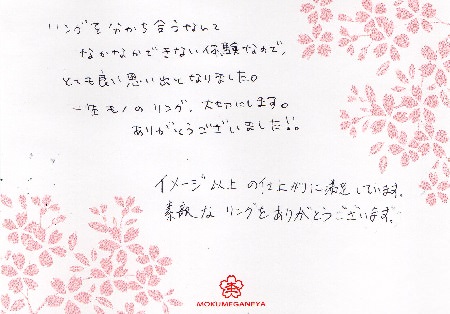 リングを分かち合うなんて
なかなかできない体験なので、
とても良い思い出となりました。
一生モノのリング、大切にします。
ありがとうございました!!
イメージ以上の仕上がりに満足しています。
素敵なリングをありがとうございます。
MOKUMEGANEYA